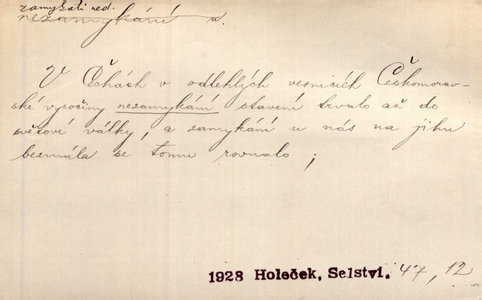 zamykati ned.
nezamykání n.
V Čechách v odlehlých vesnicích Českomorav-
ské vysočiny nezamykání stavení trvalo až do
světové války, a zamykání u nás na jihu
bezmála se tomu rovnalo;
1928 Holeček, Selství. 47, 12